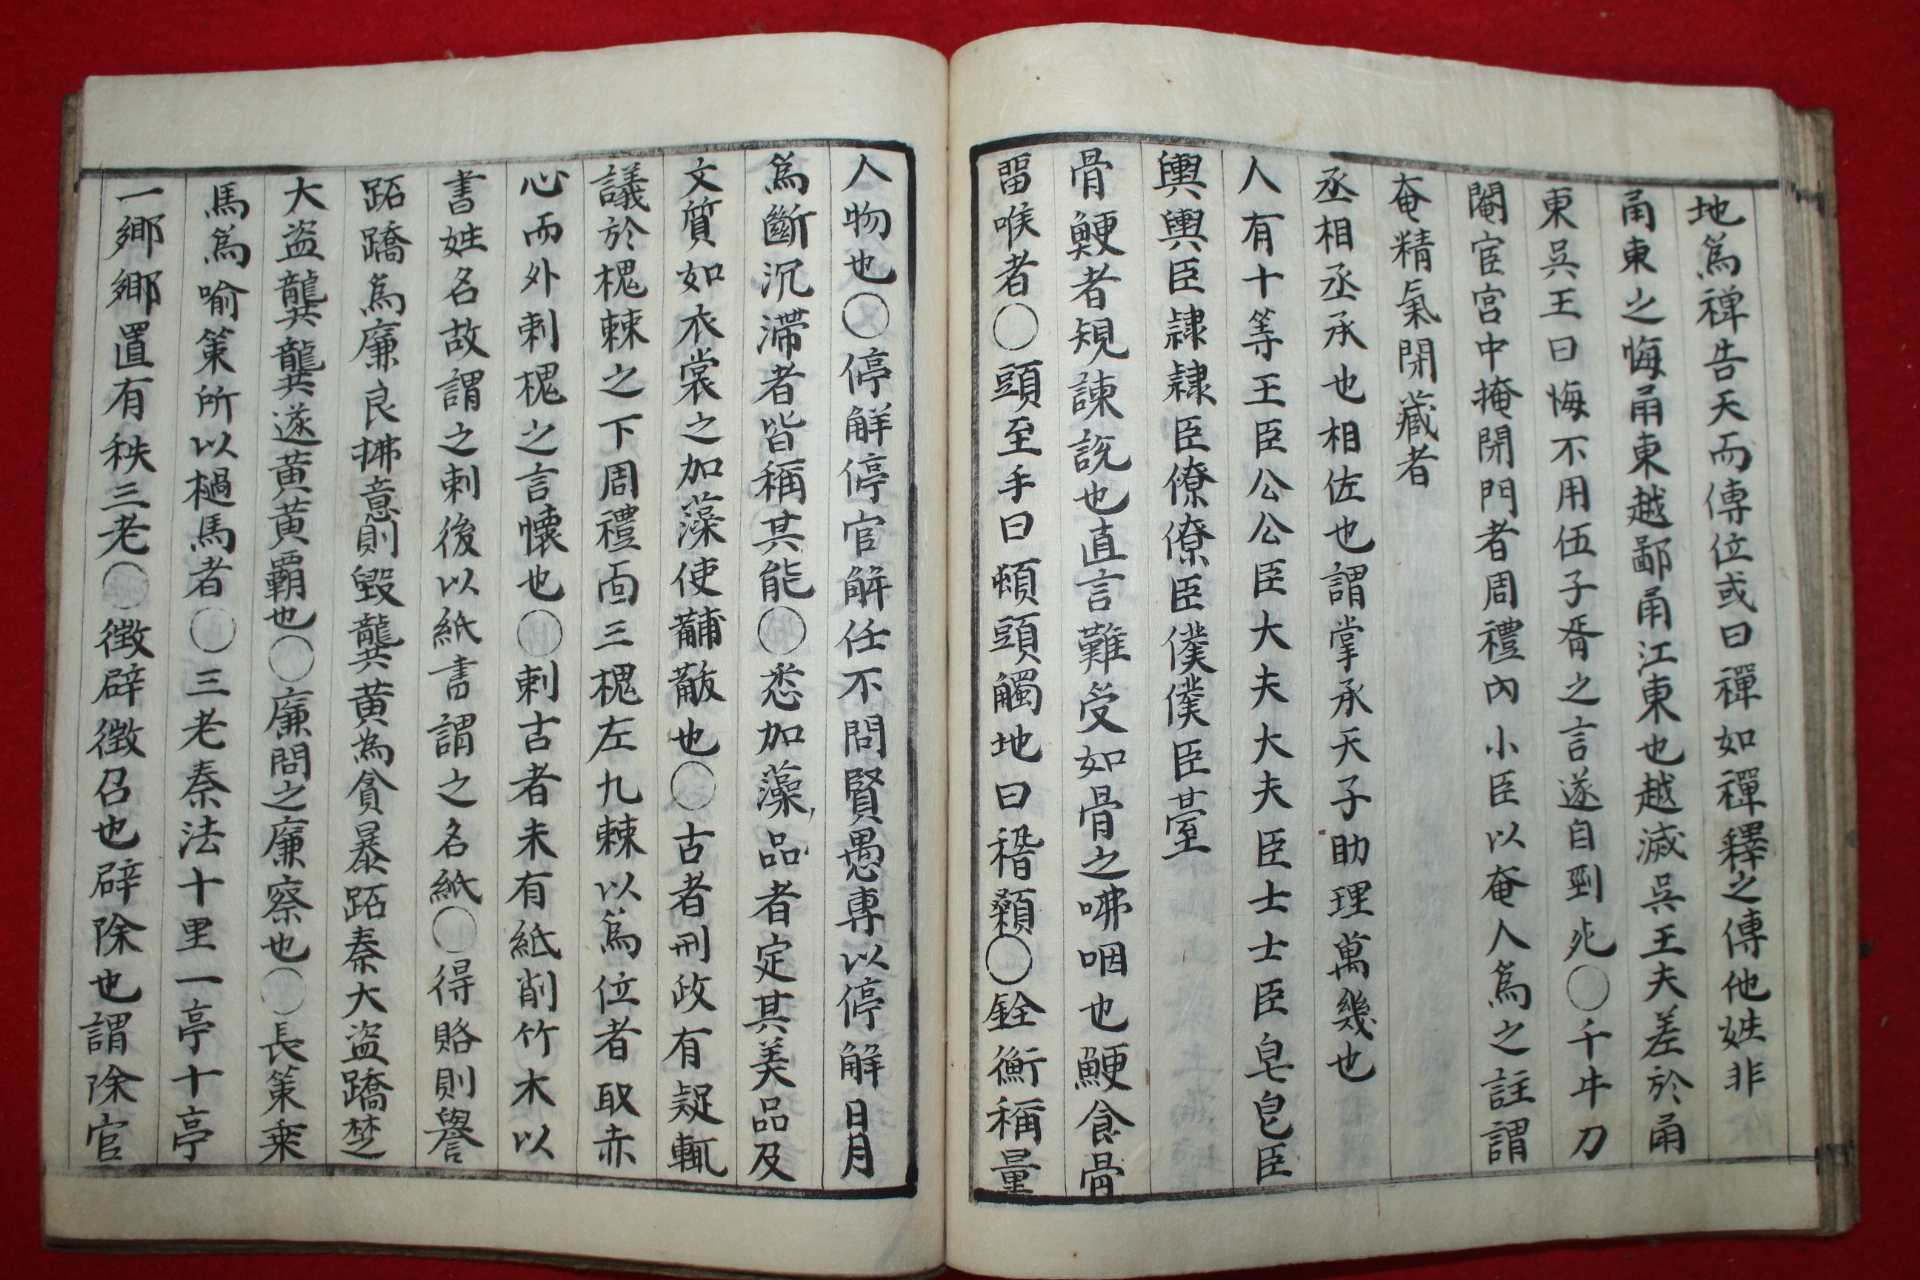 地爲禪告天而傳位或曰禪如禪釋之傳他姓非
甬東之悔甬東越鄙甬江東也越滅吳王夫差於甬
東吳王曰悔不用伍子胥之言遂自剄死○千牛刀
閹宦宮中掩閉門者周禮內小臣以奄人爲之註謂
奄精氣閉藏者
丞相丞承也相佐也謂掌承天子助理萬幾也
人有十等王臣公公臣大夫大夫臣士士臣皂皂臣
輿輿臣隷隷臣僚僚臣僕僕臣臺
骨鯁者規諫說也直言難受如骨之咈咽也鯁食骨
畱喉者○頭至手曰頓頭觸地曰稽顙○銓衡稱量
人物也○停解停官解任不問賢愚專以停解日月
爲斷沉滯者皆稱其能○悉加藻品者定其美品及
文質如衣裳之加藻使黼黻也○古者刑政有疑輒
議於槐棘之下周禮面三槐左九棘以爲位者取赤
心而外刺槐之言懷也○刺古者未有紙削竹木以
書姓名故謂之刺後以紙書謂之名紙○得賂則譽
跖蹻爲廉良拂意則毀龔黃為貪暴跖秦大盜蹻楚
大盜龔龔遂黃黃覇也○廉問之廉察也○長策乘
馬爲喻策所以檛馬者○三老秦法十里一亭十亭
一鄕鄕置有秩三老○徵辟徵召也辟除也謂除官